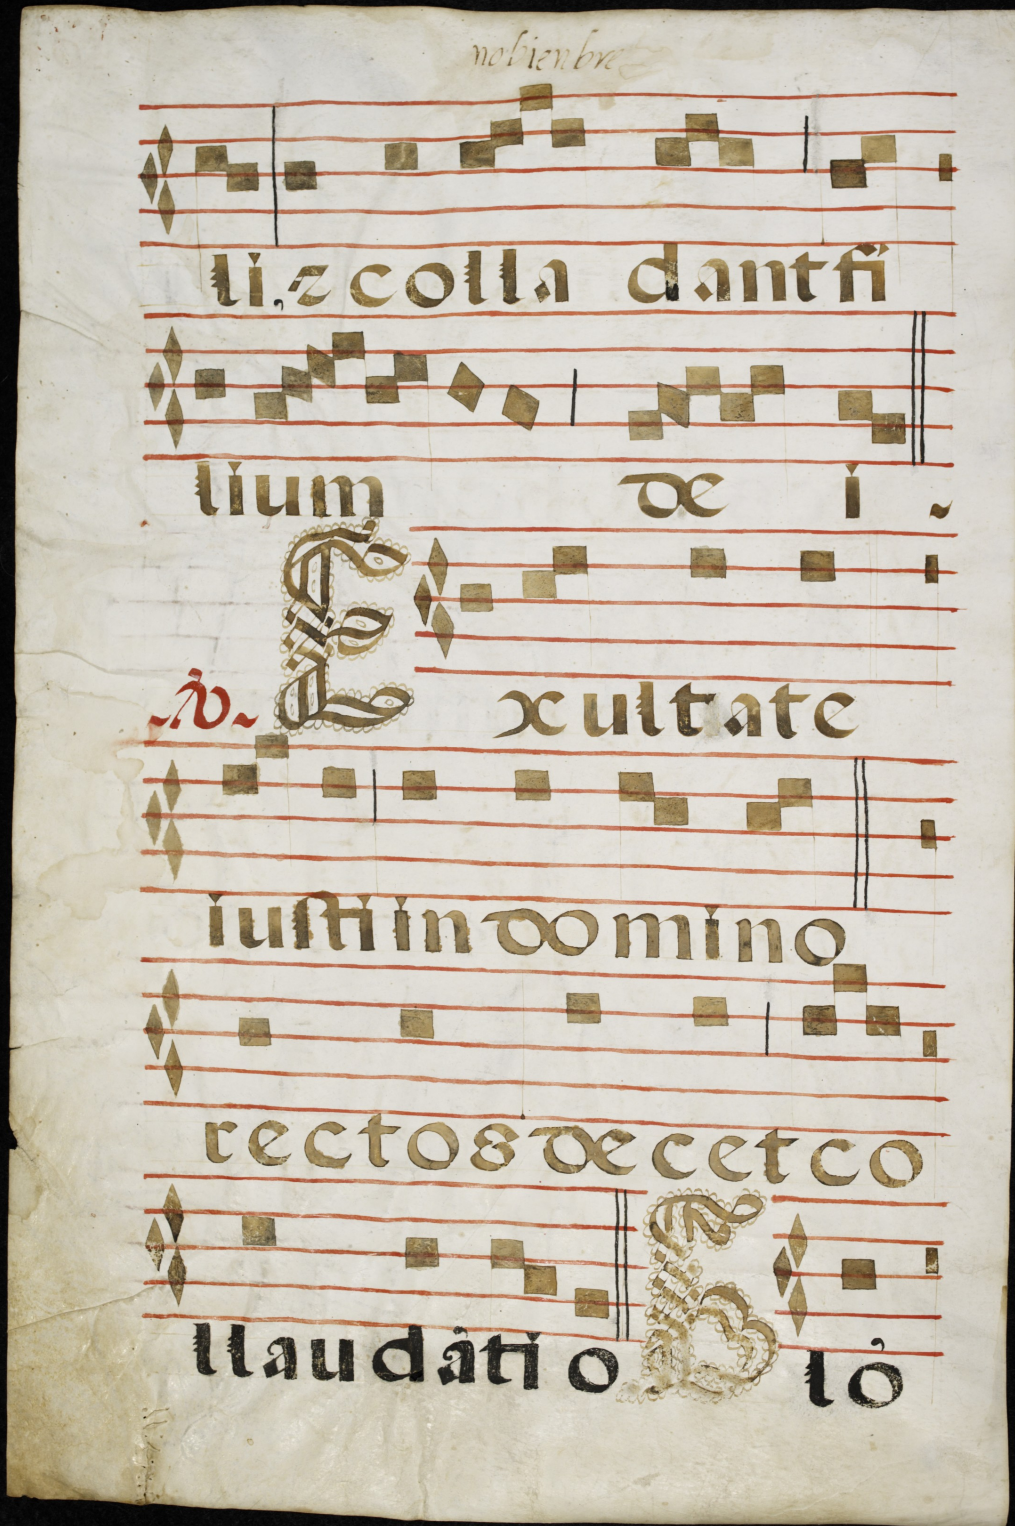 nobienbre
li, z colla dant fi
lium de i
℣ Exultate
iusti in domino
rectos decet co
llaudãtio
Blo᷒